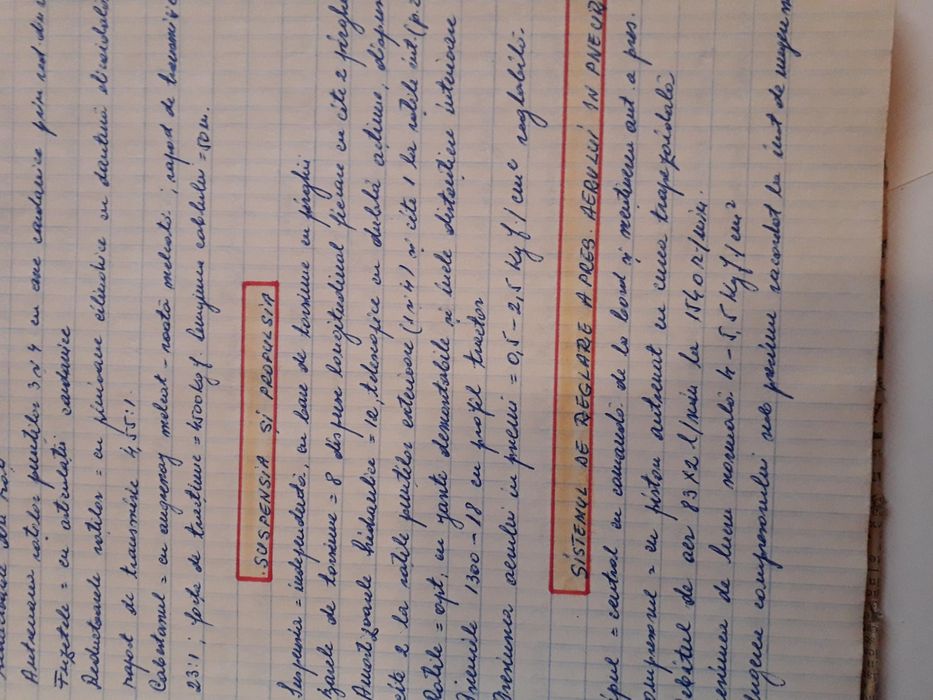 Antrenarea roților punților 3 și 4 cu axe cardanice prin
Fuzetele = cu articulații cardanice
Reductoarele roților = cu pinioane cilindrice cu dantură
raport de transmisie 4,55:1.
Cabestanul = cu angrenaj melcat - roată melcată; raport de transmisie
23:1; forța de tracțiune = 4500 kgf. lungimea cablului = 50 m.
SUSPENSIA ȘI PROPULSIA
Suspensia = independentă, cu bare de torsiune cu pârghii
Barele de torsiune = 8 dispuse longitudinal fiecare cu cîte 2 pîrghii
Amortizoarele hidraulice = 12, telescopice cu dublă acțiune,
cîte 2 la roțile punților exterioare (1 și 4) și cîte 1 la roțile int.
Roțile = opt, cu jante demontabile și inele distanțiere interioare
Pneurile 1300-18 cu profil tractor
Presiunea aerului în pneuri = 0,5-2,5 Kgf/cm² reglabilă.
SISTEMUL DE REGLARE A PRES. AERULUI IN PNEURI
Tipul = central cu comandă de la bord și menținerea aut. a pres.
Compresorul = cu piston antrenat cu curea trapezoidală
Debitul de aer 83x2 l/min la 1540 r/min
Presiunea de lucru normală 4-5,5 Kgf/cm²
Ungerea compresorului sub presiune racordat la inst de ungere